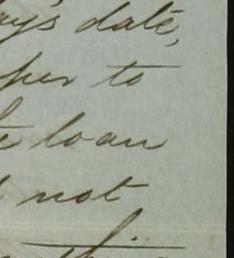 ays date,
per to
te loan
t not